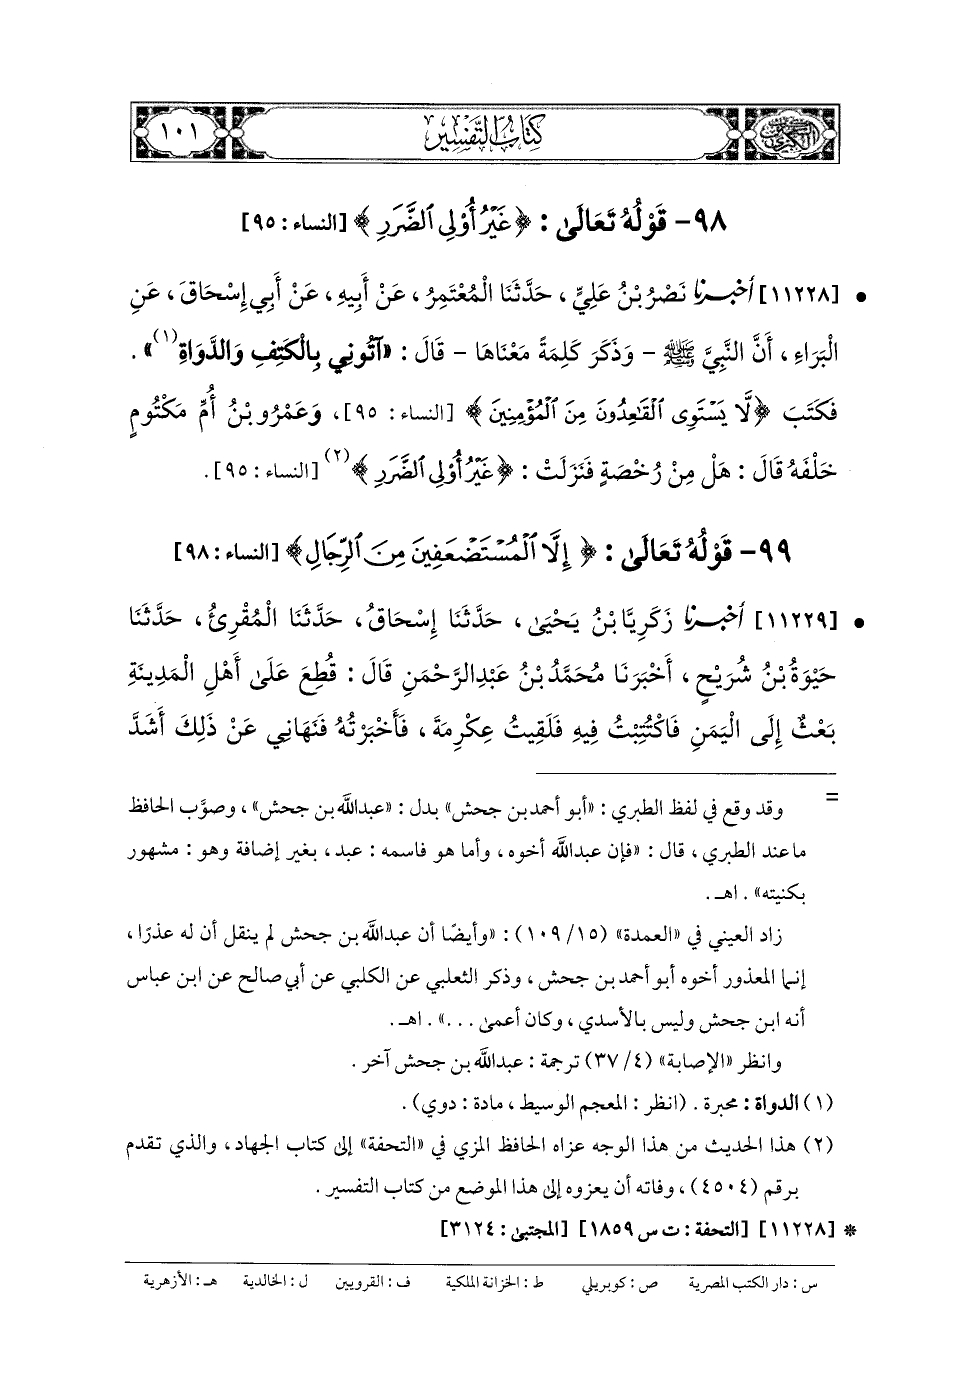 السنن الكبرى كتاب التفسير ١٠١
٩٨- قَوْلُهُ تَعَالَىٰ : ﴿غَيْرُ أُوْلِي ٱلضَّرَرِ﴾ [النساء : ٩٥]
• [١١٢٢٨] أَخْبَرَنَا نَصْرُ بْنُ عَلِيٍّ ، حَدَّثَنَا الْمُعْتَمِرُ ، عَنْ أَبِيهِ ، عَنْ أَبِي إِسْحَاقَ ، عَنِ
الْبَرَاءِ ، أَنَّ النَّبِيَّ ﷺ - وَذَكَرَ كَلِمَةً مَعْنَاهَا - قَالَ : «آتُونِي بِالْكَتِفِ وَالدَّوَاةِ(١)» .
فَكَتَبَ ﴿لَّا يَسْتَوِى ٱلْقَٰعِدُونَ مِنَ ٱلْمُؤْمِنِينَ﴾ [النساء : ٩٥]، وَعَمْرُو بْنُ أُمِّ مَكْتُومٍ
خَلْفَهُ قَالَ : هَلْ مِنْ رُخْصَةٍ فَنَزَلَتْ : ﴿غَيْرُ أُوْلِي ٱلضَّرَرِ﴾(٢) [النساء : ٩٥] .
٩٩- قَوْلُهُ تَعَالَىٰ : ﴿إِلَّا ٱلْمُسْتَضْعَفِينَ مِنَ ٱلرِّجَالِ﴾ [النساء : ٩٨]
• [١١٢٢٩] أَخْبَرَنَا زَكَرِيَّا بْنُ يَحْيَىٰ ، حَدَّثَنَا إِسْحَاقُ، حَدَّثَنَا الْمُقْرِئُ ، حَدَّثَنَا
حَيْوَةُ بْنُ شُرَيْحٍ ، أَخْبَرَنَا مُحَمَّدُ بْنُ عَبْدِالرَّحْمَنِ قَالَ : قُطِعَ عَلَىٰ أَهْلِ الْمَدِينَةِ
بَعْثٌ إِلَى الْيَمَنِ فَاكْتُتِبْتُ فِيهِ فَلَقِيتُ عِكْرِمَةَ ، فَأَخْبَرْتُهُ فَنَهَانِي عَنْ ذَلِكَ أَشَدَّ
= وقد وقع في لفظ الطبري : «أبو أحمد بن جحش» بدل : «عبدالله بن جحش» ، وصوَّب الحافظ
ما عند الطبري ، قال : «فإن عبدالله أخوه ، وأما هو فاسمه : عبد ، بغير إضافة وهو : مشهور
بكنيته» . اهـ .
زاد العيني في «العمدة» (١٥/ ١٠٩) : «وأيضًا أن عبدالله بن جحش لم ينقل أن له عذرًا ،
إنما المعذور أخوه أبو أحمد بن جحش ، وذكر الثعلبي عن الكلبي عن أبي صالح عن ابن عباس
أنه ابن جحش وليس بالأسدي ، وكان أعمىٰ ...» . اهـ .
وانظر «الإصابة» (٤/ ٣٧) ترجمة : عبدالله بن جحش آخر .
(١) الدواة : محبرة . (انظر : المعجم الوسيط ، مادة : دوي) .
(٢) هذا الحديث من هذا الوجه عزاه الحافظ المزي في «التحفة» إلى كتاب الجهاد ، والذي تقدم
برقم (٤٥٠٤) ، وفاته أن يعزوه إلى هذا الموضع من كتاب التفسير .
* [١١٢٢٨] [التحفة : ت س ١٨٥٩] [المجتبىٰ : ٣١٢٤]
س : دار الكتب المصرية ص : كوبريلي ط : الخزانة الملكية ف : القرويين ل : الخالدية هـ : الأزهرية